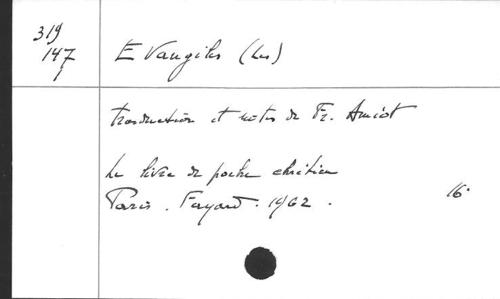 319
147
1
Evangiles (Les)
traduction et notes de Fr. Amiot
Le livre de poche chrétien
Paris. Fayard. 1962.
16°